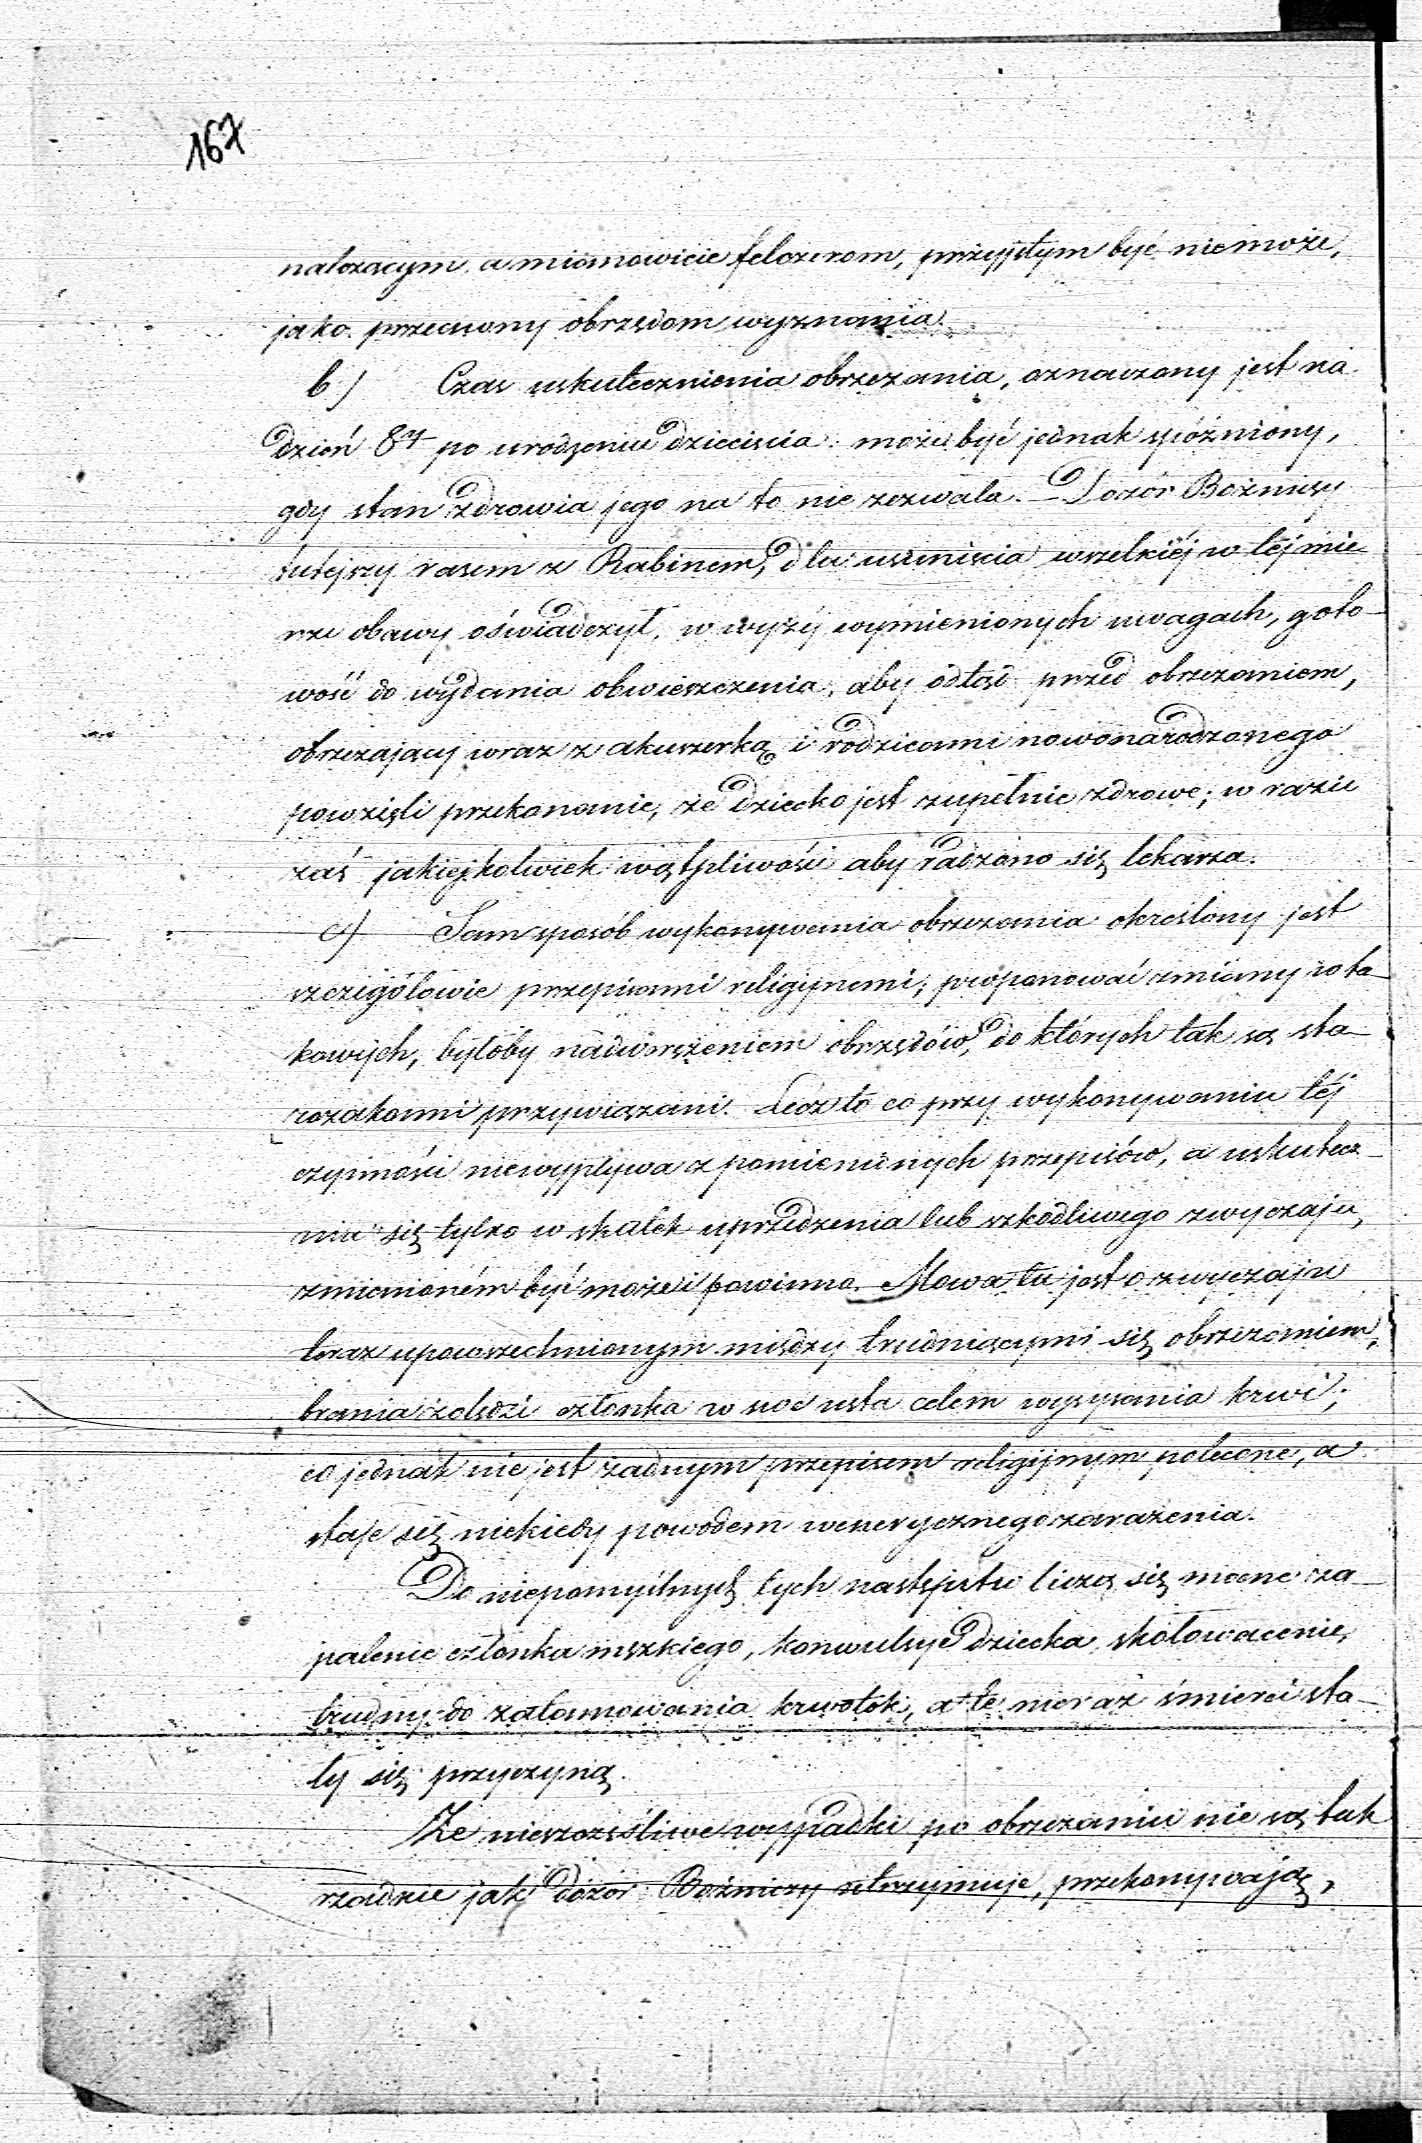 167
należącym, a mianowicie felczerom, przyjętym być nie może,
jako przeciwny obrzędom wyznania.
b) Czas uskutecznienia obrzezania, oznaczony jest na
dzień 8my po urodzeniu dziecięcia. może być jednak spóźniony,
gdy stan zdrowia jego na to nie zezwala. – Dozór Bóżniczy
tutejszy razem z Rabinem, dla usunięcia wszelkiéj w téj mie-
rze obawy oświadczył, w wyżéj wymienionych uwagach, goto-
wość do wydania obwieszczenia, aby odtąd przed obrzezaniem,
obrzezający wraz z akuszerką i rodzicami nowonarodzonego
powzięli przekonanie, że dziecko jest zupełnie zdrowe; w razie
zaś jakiejkolwiek wątpliwości aby radzono się lekarza.
c) Sam sposób wykonywania obrzezania określony jest
szczegółowie przepisami religijnemi; proponować zmiany w ta-
kowych, byłoby nadwerężeniem obrzędów, do których tak są sta-
rozakonni przywiązani. Lecz to co przy wykonywaniu téj
czynności niewypływa z pomienionych przepisów, a uskutecz-
nia się tylko w skutek uprzedzenia lub szkodliwego zwyczaju,
zmienioném być może i powinno. Mowa tu jest o zwyczaju
teraz upowszechnionym między trudniącymi się obrzezaniem,
brania żołędzi członka w swe usta celem wysysania krwi;
co jednak nie jest żadnym przepisem religijnym polecone, a
staje się niekiedy powodem wenerycznego zarażenia.
Do niepomyślnych tych następstw liczą się mocne za-
palenie członka męzkiego, konwulsye dziecka, skołowacenie,
trudny do zatamowania krwotok, a te nieraz śmierci sta-
ły się przyczyną.
Że nieszczęśliwe wypadki po obrzezaniu nie są tak
rzadkie jak dozór Bóżniczy utrzymuje, przekonywają,